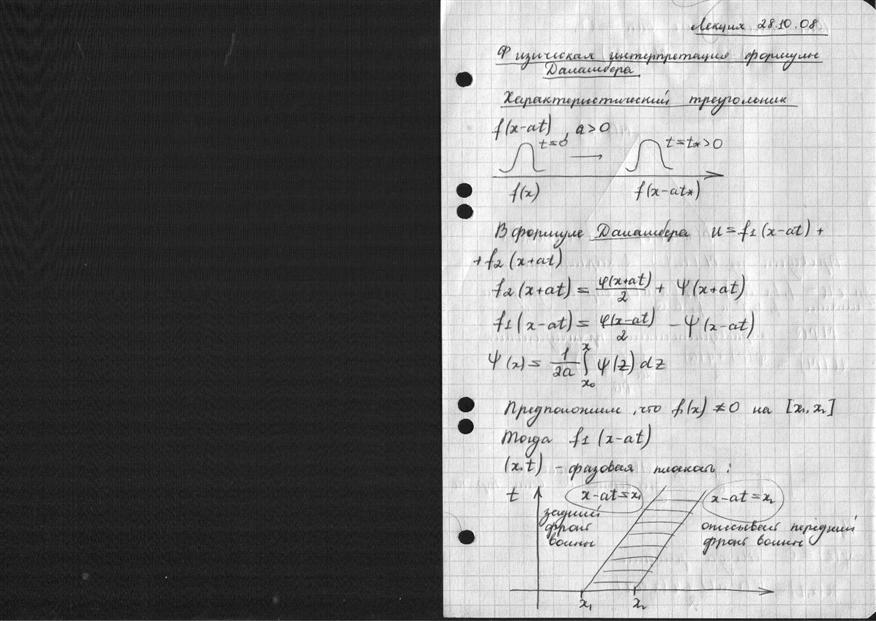 Лекция 28.10.08
Физическая интерпретация формулы
Даламбера
Характеристический треугольник
f(x-at), a>0
t=0 → t=t*>0
f(x) f(x-at*)
В формуле Даламбера u=f1(x-at)+
+f2(x+at)
f2(x+at)=φ(x+at)/2+Ψ(x+at)
f1(x-at)=φ(x-at)/2-Ψ(x-at)
Ψ(x)=1/2a ∫x0^x ψ(z)dz
Предположим, что f1(x)≠0 на [x1,x2]
Тогда f1(x-at)
(x,t) - фазовая плоскость:
t x-at=x1 x-at=x2
задний
фронт описывает передний
волны фронт волны
x1 x2